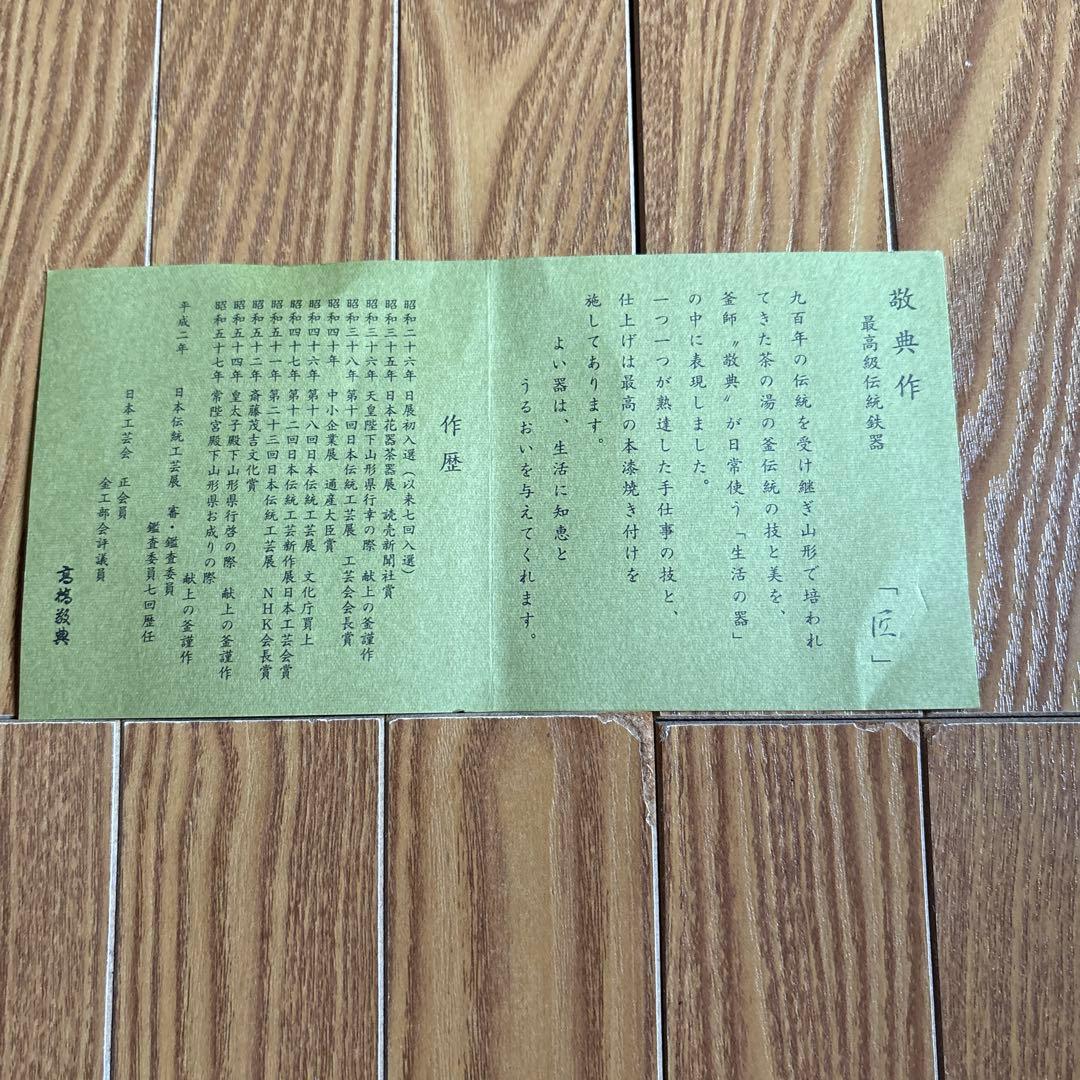 敬典作
最高級伝統鉄器
「匠」
九百年の伝統を受け継ぎ山形で培われ
てきた茶の湯の釜伝統の技と美を、
釜師〝敬典〟が日常使う「生活の器」
の中に表現しました。
一つ一つが熟達した手仕事の技と、
仕上げは最高の本漆焼き付けを
施してあります。
よい器は、生活に知恵と
うるおいを与えてくれます。
作歴
昭和二十六年 日展初入選(以来七回入選)
昭和三十五年 日本花器茶器展 読売新聞社賞
昭和三十六年 天皇陛下山形県行幸の際 献上の釜謹作
昭和三十八年 第十回日本伝統工芸展 工芸会会長賞
昭和四十年 中小企業展 通産大臣賞
昭和四十六年 第十八回日本伝統工芸展 文化庁買上
昭和四十七年 第十二回日本伝統工芸新作展日本工芸会賞
昭和五十一年 第二十三回日本伝統工芸展 NHK会長賞
昭和五十二年 斎藤茂吉文化賞
昭和五十四年 皇太子殿下山形県行啓の際 献上の釜謹作
昭和五十七年 常陸宮殿下山形県お成りの際
献上の釜謹作
平成二年 日本伝統工芸展 審・鑑査委員
鑑査委員七回歴任
日本工芸会 正会員
金工部会評議員
高橋敬典